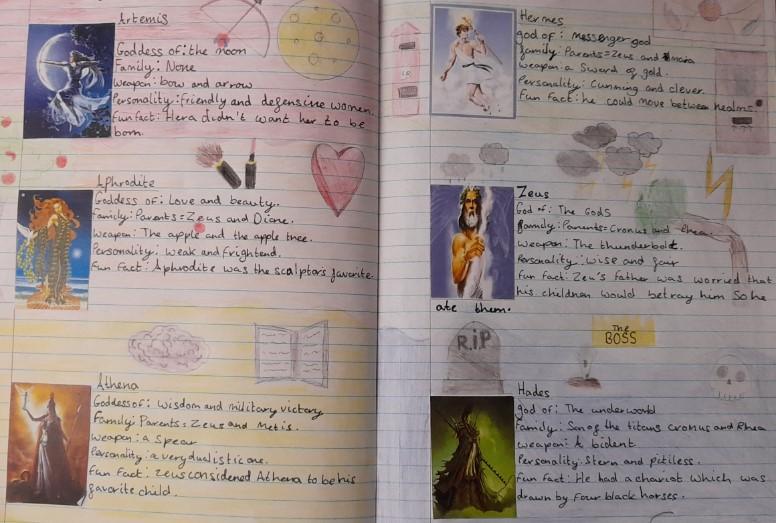 Artemis
Goddess of: the moon
Family: None
Weapon: bow and arrow
Personality: Friendly and defensive women.
Fun Fact: Hera didn't want her to be
born.
Aphrodite
Goddess of: Love and beauty.
Family: Parents = Zeus and Dione.
Weapon: The apple and the apple tree.
Personality: Weak and frightend.
Fun Fact: Aphrodite was the sculptors favorite.
Athena
Goddess of: Wisdom and military victory
Family: Parents: Zeus and Metis.
Weapon: a spear
Personality: a very dualistic one.
Fun Fact: Zeus considered Athena to be his
favorite child.
Hermes
god of: Messenger god
Family: Parents = Zeus and Maia
Weapon: a Sword of gold.
Personality: Cunning and clever.
Fun Fact: he could move between realms.
Zeus
God of: The Gods
Family: Parents: Cronus and Rhea.
Weapon: The thunderbolt.
Personality: Wise and fair
Fun Fact: Zeu's father was worried that
his children would betray him So he
ate them.
R.i.P
The
BOSS
Hades
god of: The underworld
Family: Son of the titans Cronus and Rhea
Weapon: A bident.
Personality: Stern and pitiless.
Fun Fact: He had a chariot which was
drawn by four black horses.